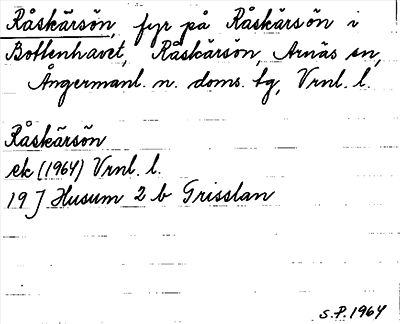 Råskärsön, fyr på Råskärsön i
Bottenhavet, Råskärsön, Arnäs sn,
Ångermanl. n. doms. tg, Vrnl. l.
Råskärsön
ek (1964) Vrnl. l.
19 J Husum 2 b Grisslan
S.P. 1964